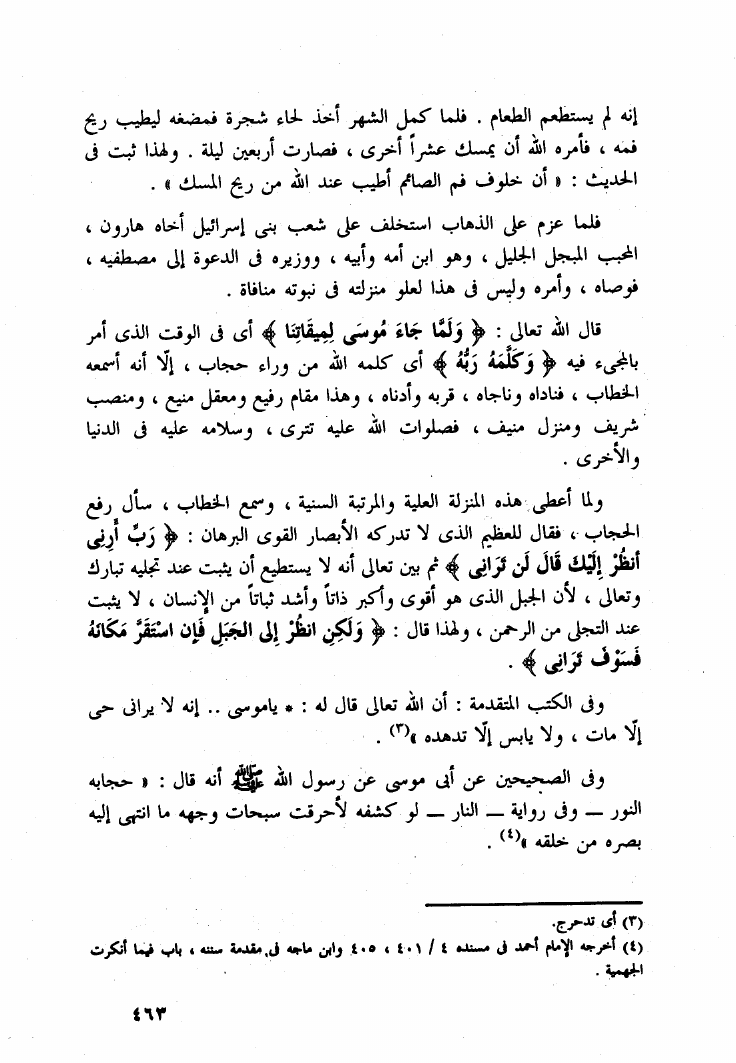 إنه لم يستطعم الطعام . فلما كمل الشهر أخذ لحاء شجرة فمضغه ليطيب ريح
فمه ، فأمره الله أن يمسك عشراً أخرى ، فصارت أربعين ليلة . ولهذا ثبت فى
الحديث : « أن خلوف فم الصائم أطيب عند الله من ريح المسك » .
فلما عزم على الذهاب استخلف على شعب بنى إسرائيل أخاه هارون ،
المحبب المبجل الجليل ، وهو ابن أمه وأبيه ، ووزيره فى الدعوة إلى مصطفيه ،
فوصاه ، وأمره وليس فى هذا لعلو منزلته فى نبوته منافاة .
قال الله تعالى : ﴿ وَلَمَّا جَاءَ مُوسَى لِمِيقَاتِنَا ﴾ أى فى الوقت الذى أمر
بالمجىء فيه ﴿ وَكَلَّمَهُ رَبُّهُ ﴾ أى كلمه الله من وراء حجاب ، إلّا أنه أسمعه
الخطاب ، فناداه وناجاه ، قربه وأدناه ، وهذا مقام رفيع ومعقل منيع ، ومنصب
شريف ومنزل منيف ، فصلوات الله عليه تترى ، وسلامه عليه فى الدنيا
والأخرى .
ولما أعطى هذه المنزلة العلية والمرتبة السنية ، وسمع الخطاب ، سأل رفع
الحجاب ، فقال للعظيم الذى لا تدركه الأبصار القوى البرهان : ﴿ رَبِّ أَرِنِى
أنظُرْ إِلَيْكَ قَالَ لَن تَرَانِى ﴾ ثم بين تعالى أنه لا يستطيع أن يثبت عند تجليه تبارك
وتعالى ، لأن الجبل الذى هو أقوى وأكبر ذاتاً وأشد ثباتاً من الإنسان ، لا يثبت
عند التجلى من الرحمن ، ولهذا قال : ﴿ وَلَكِنِ انظُرْ إِلى الجَبَلِ فَإِن اسْتَقَرَّ مَكَانَهُ
فَسَوْفَ تَرَانِى ﴾ .
وفى الكتب المتقدمة : أن الله تعالى قال له : * ياموسى .. إنه لا يرانى حى
إلّا مات ، ولا يابس إلّا تدهده »(٣) .
وفى الصحيحين عن أبى موسى عن رسول الله ﷺ أنه قال : « حجابه
النور ــ وفى رواية ــ النار ــ لو كشفه لأحرقت سبحات وجهه ما انتهى إليه
بصره من خلقه »(٤) .
(٣) أى تدحرج.
(٤) أخرجه الإمام أحمد فى مسنده ٤ / ٤٠١ ، ٤٠٥ وابن ماجه فى مقدمة سننه ، باب فيما أنكرت
الجهمية .
٤٦٣